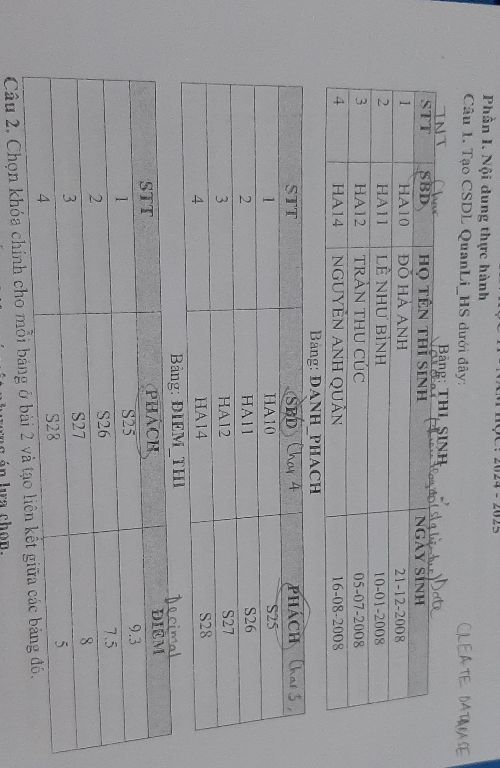 2024 - 2025
Phần I. Nội dung thực hành
Câu 1. Tạo CSDL QuanLi_HS dưới đây:
CREATE DATABASE
Bảng: THI_SINH
INT Char Date
STT SBD HỌ TÊN THÍ SINH NGÀY SINH
1 HA10 ĐỖ HÀ ANH 21-12-2008
2 HA11 LÊ NHƯ BÌNH 10-01-2008
3 HA12 TRẦN THU CÚC 05-07-2008
4 HA14 NGUYỄN ANH QUÂN 16-08-2008
Bảng: DANH_PHACH
STT SBD Char 4 PHACH Char 3,
1 HA10 S25
2 HA11 S26
3 HA12 S27
4 HA14 S28
Bảng: DIEM_THI
Decimal
STT PHACH DIEM
1 S25 9.3
2 S26 7.5
3 S27 8
4 S28 5
Câu 2. Chọn khóa chính cho mỗi bảng ở bài 2 và tạo liên kết giữa các bảng đó.
phương án lựa chọn.